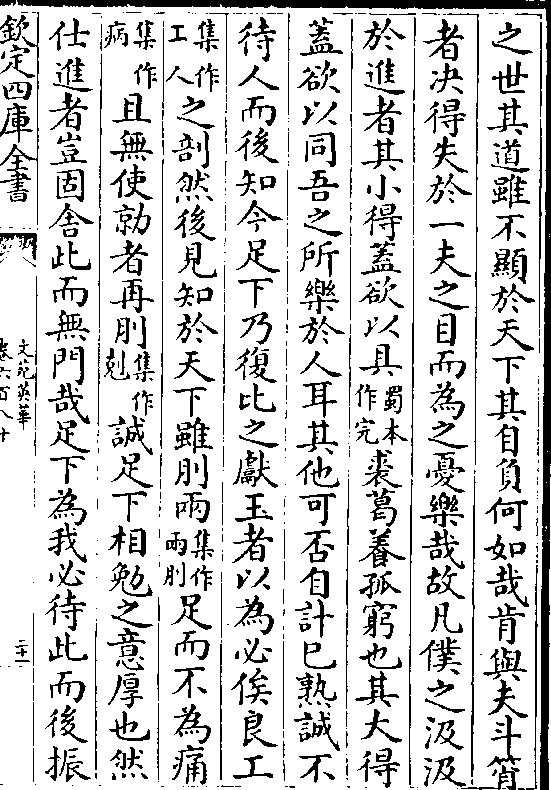 之世其道雖不顯於天下其自負何如哉肯與夫斗筲
者决得失於一夫之目而為之憂樂哉故凡僕之汲汲
於進者其小得蓋欲以具蜀本作完裘葛養孤窮也其大得
蓋欲以同吾之所樂於人耳其他可否自計已熟誠不
待人而後知今足下乃復比之獻玉者以為必俟良工
集作工人之剖然後見知於天下雖刖兩集作兩刖足而不為痛
集作病且無使勍者再刖集作剋誠足下相勉之意厚也然
仕進者豈固舍此而無門哉足下為我必待此而後振
欽定四庫全書
文苑英華
卷六百八十
二十一